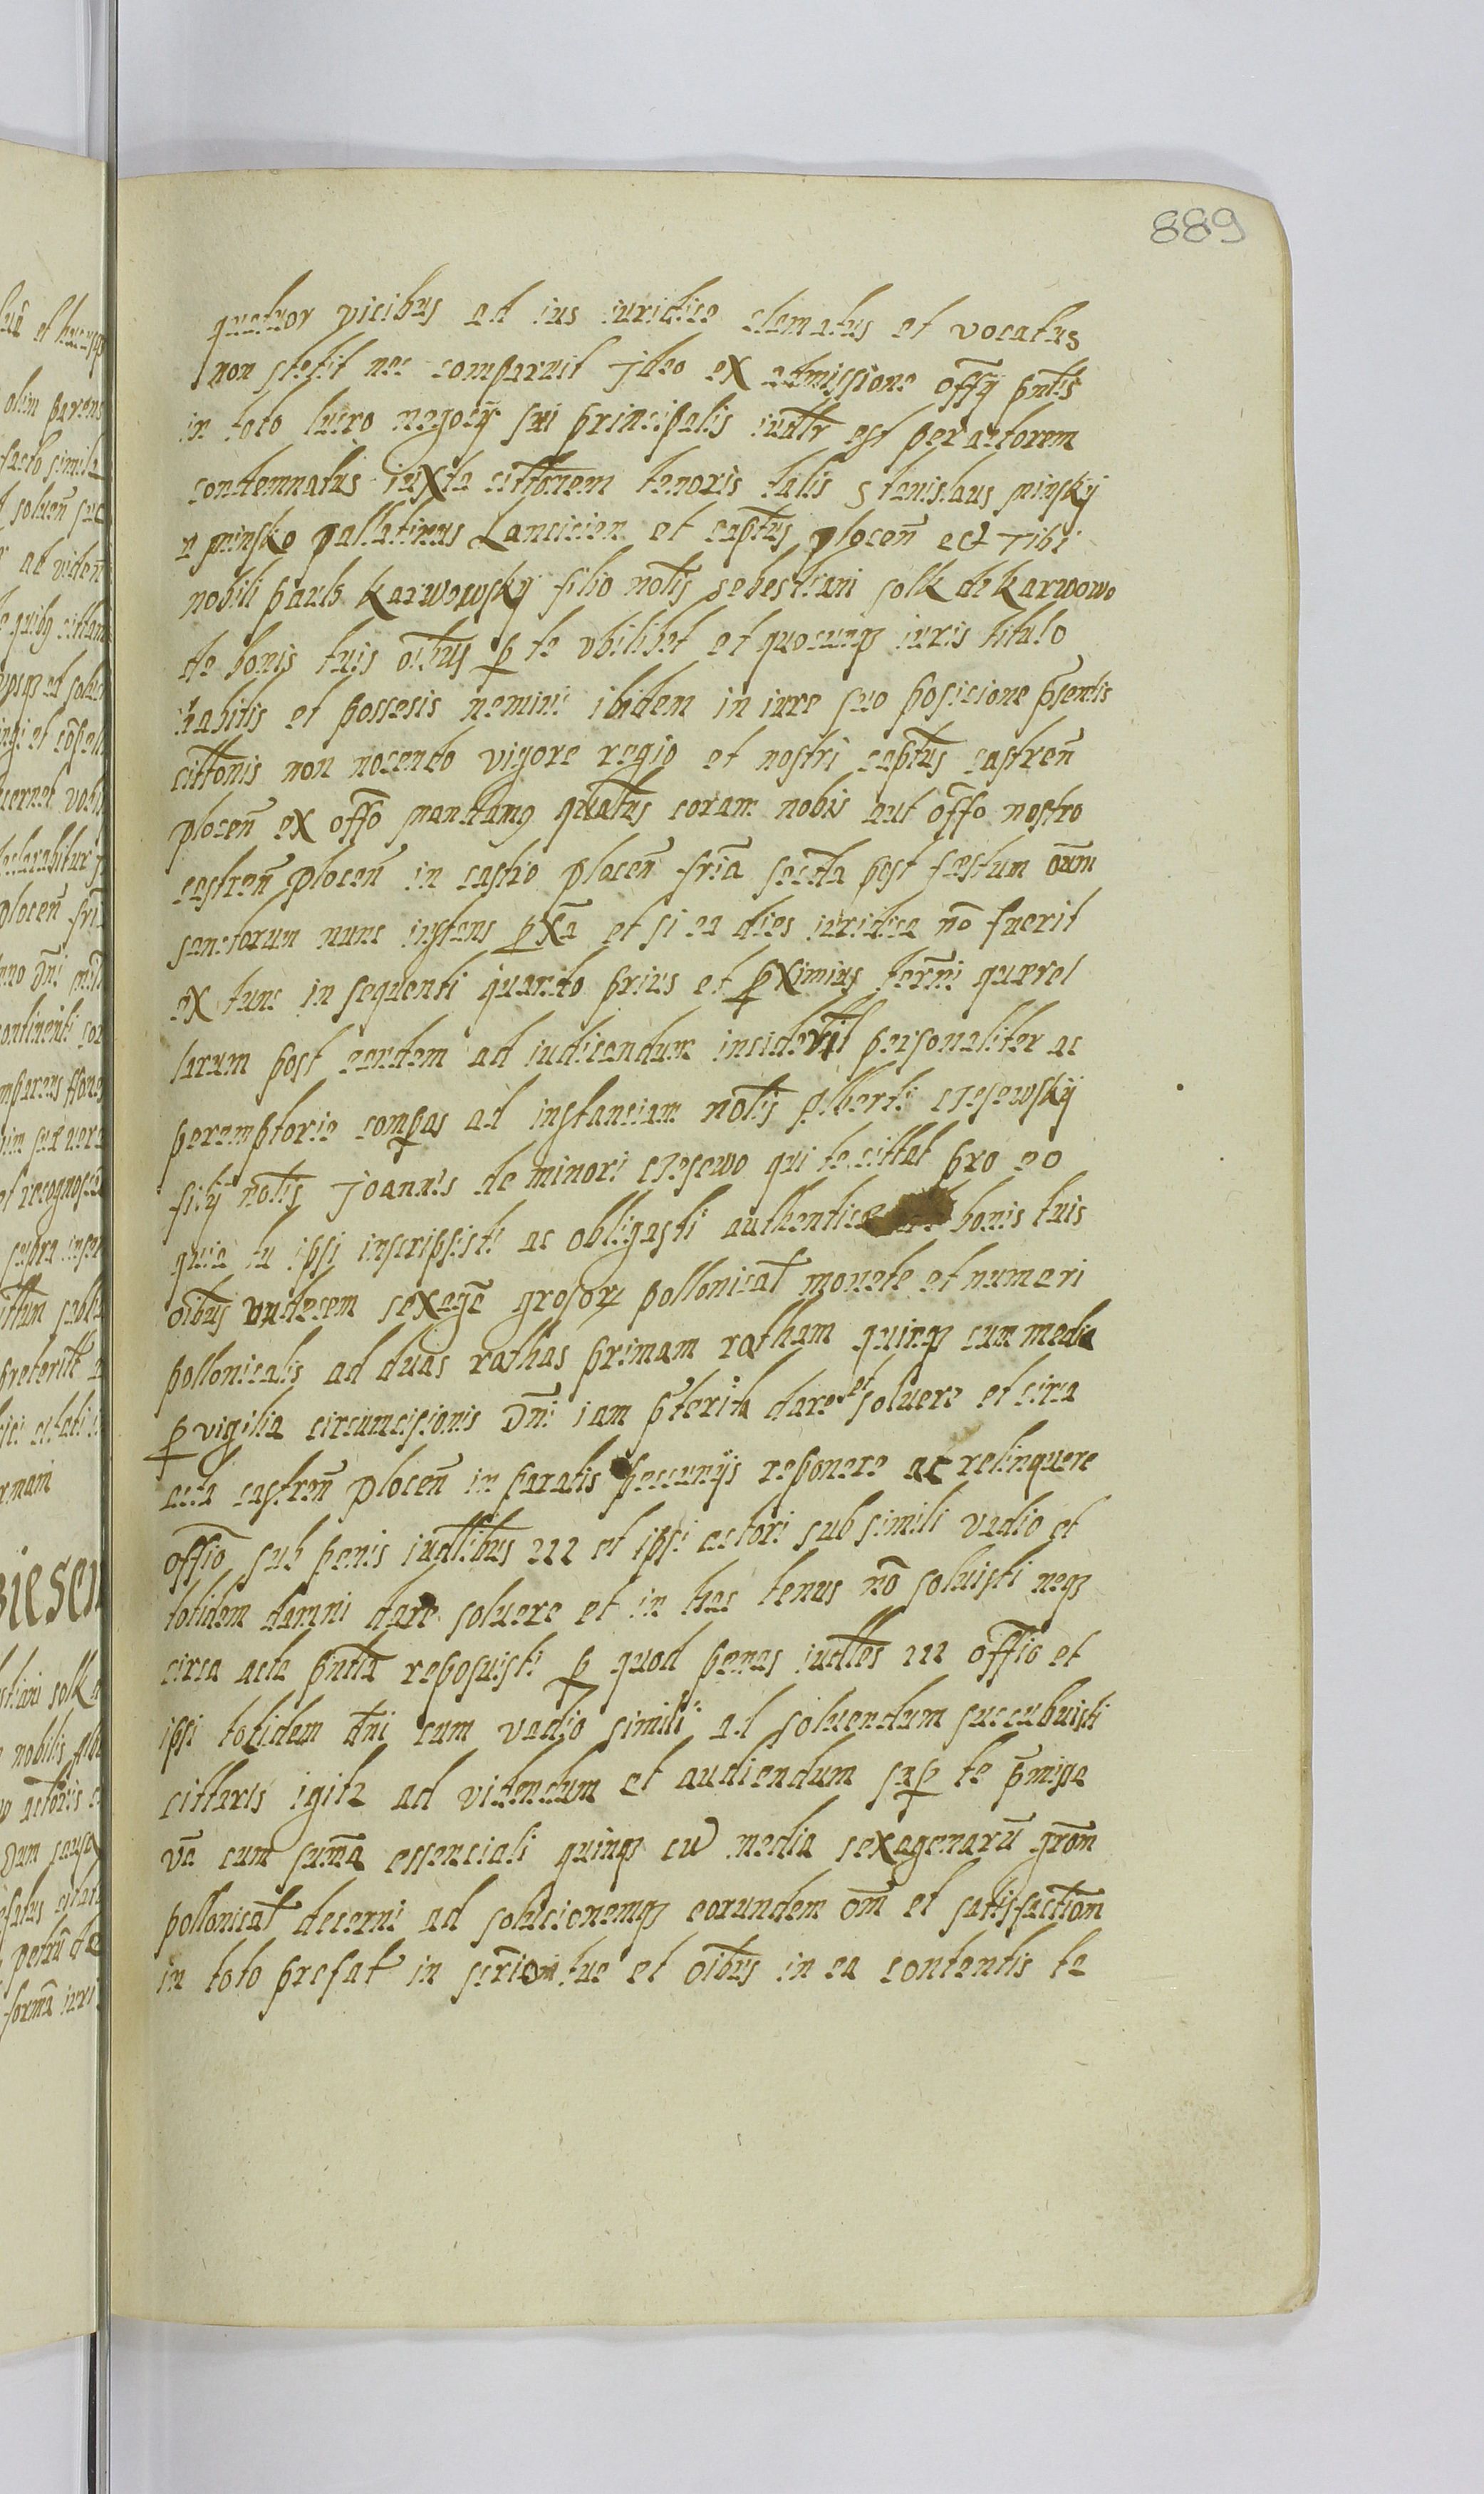 889
quatuor vicibus ad ius iuridice clamatus et vocatus
non stetit nec comparuit Ideo ex admissione offÿ pntis
in toto lucro negocÿ sui principalis iudtr est per actorem
condemnatus iuxta cittonem tenoris talis Stanislaus minskÿ
a minsko pallatinus Lancicien et captus plocen̄ ect Tibi
nobili paulo Karwowskÿ filio nobilis sebestiani solk de Karwowo
de bonis tuis oibus p te vbilibet et quocunqz iuris titulo
habitis et possesis nemini ibidem in iure suo posicione psentis
cittonis non nocendo vigore regio et nostri captus castren̄
plocen̄ ex offo mandamus quatus coram nobis aut offo nostro
castren̄ plocen̄ in castro plocen̄ fria secda post festum oium
sanctorum nunc instans pxa et si ea dies iuridica nō fuerit
ex tunc in sequenti quanto prius et pximius termi querel
larum post eandem ad iudicandum inciderit personaliter ac
peremptorie compas ad instanciam nolis Alberti czesewskÿ
filÿ nolis Joannis de minori czesewo qui te cittat pro eo
quia tu ipsi inscripsisti ac obligasti authentice bonis tuis
oibus vndecem sexage grosorz pollonicat monete et numeri
pollonicalis ad duas rathas primam ratham quinqz cum media
p vigilia circumcisionis Dni iam pterita dare et soluere et circa
acta castren̄ plocen̄ in paratis pecunÿs reponere ac relinquere
offio sub penis iudlibus 222 et ipsi actori sub simili vadio et
totidem damni dare soluere et in hac tenus nō soluisti neqz
circa acta pntia reposuisti p quod penas iudles 222 offio et
ipsi totidem dni cum vadio simili ad soluendum succubuisti
cittaris igitr ad videndum et audiendum sup te pmisa
vā cum suma essenciali quinqz cū media sexagenarū grom
pollonicat decerni ad solucionemqz eorundem om et satisfactiom
in toto prefat in scriom tue et oibus in ea contentis te